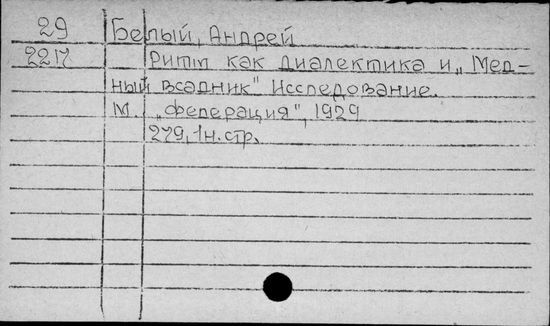 29 Белый, Андрей
2217 Ритм как диалектика и „Мед-
ный всадник" Исследование.
М. „Федерация", 1929
279, 1н. стр.